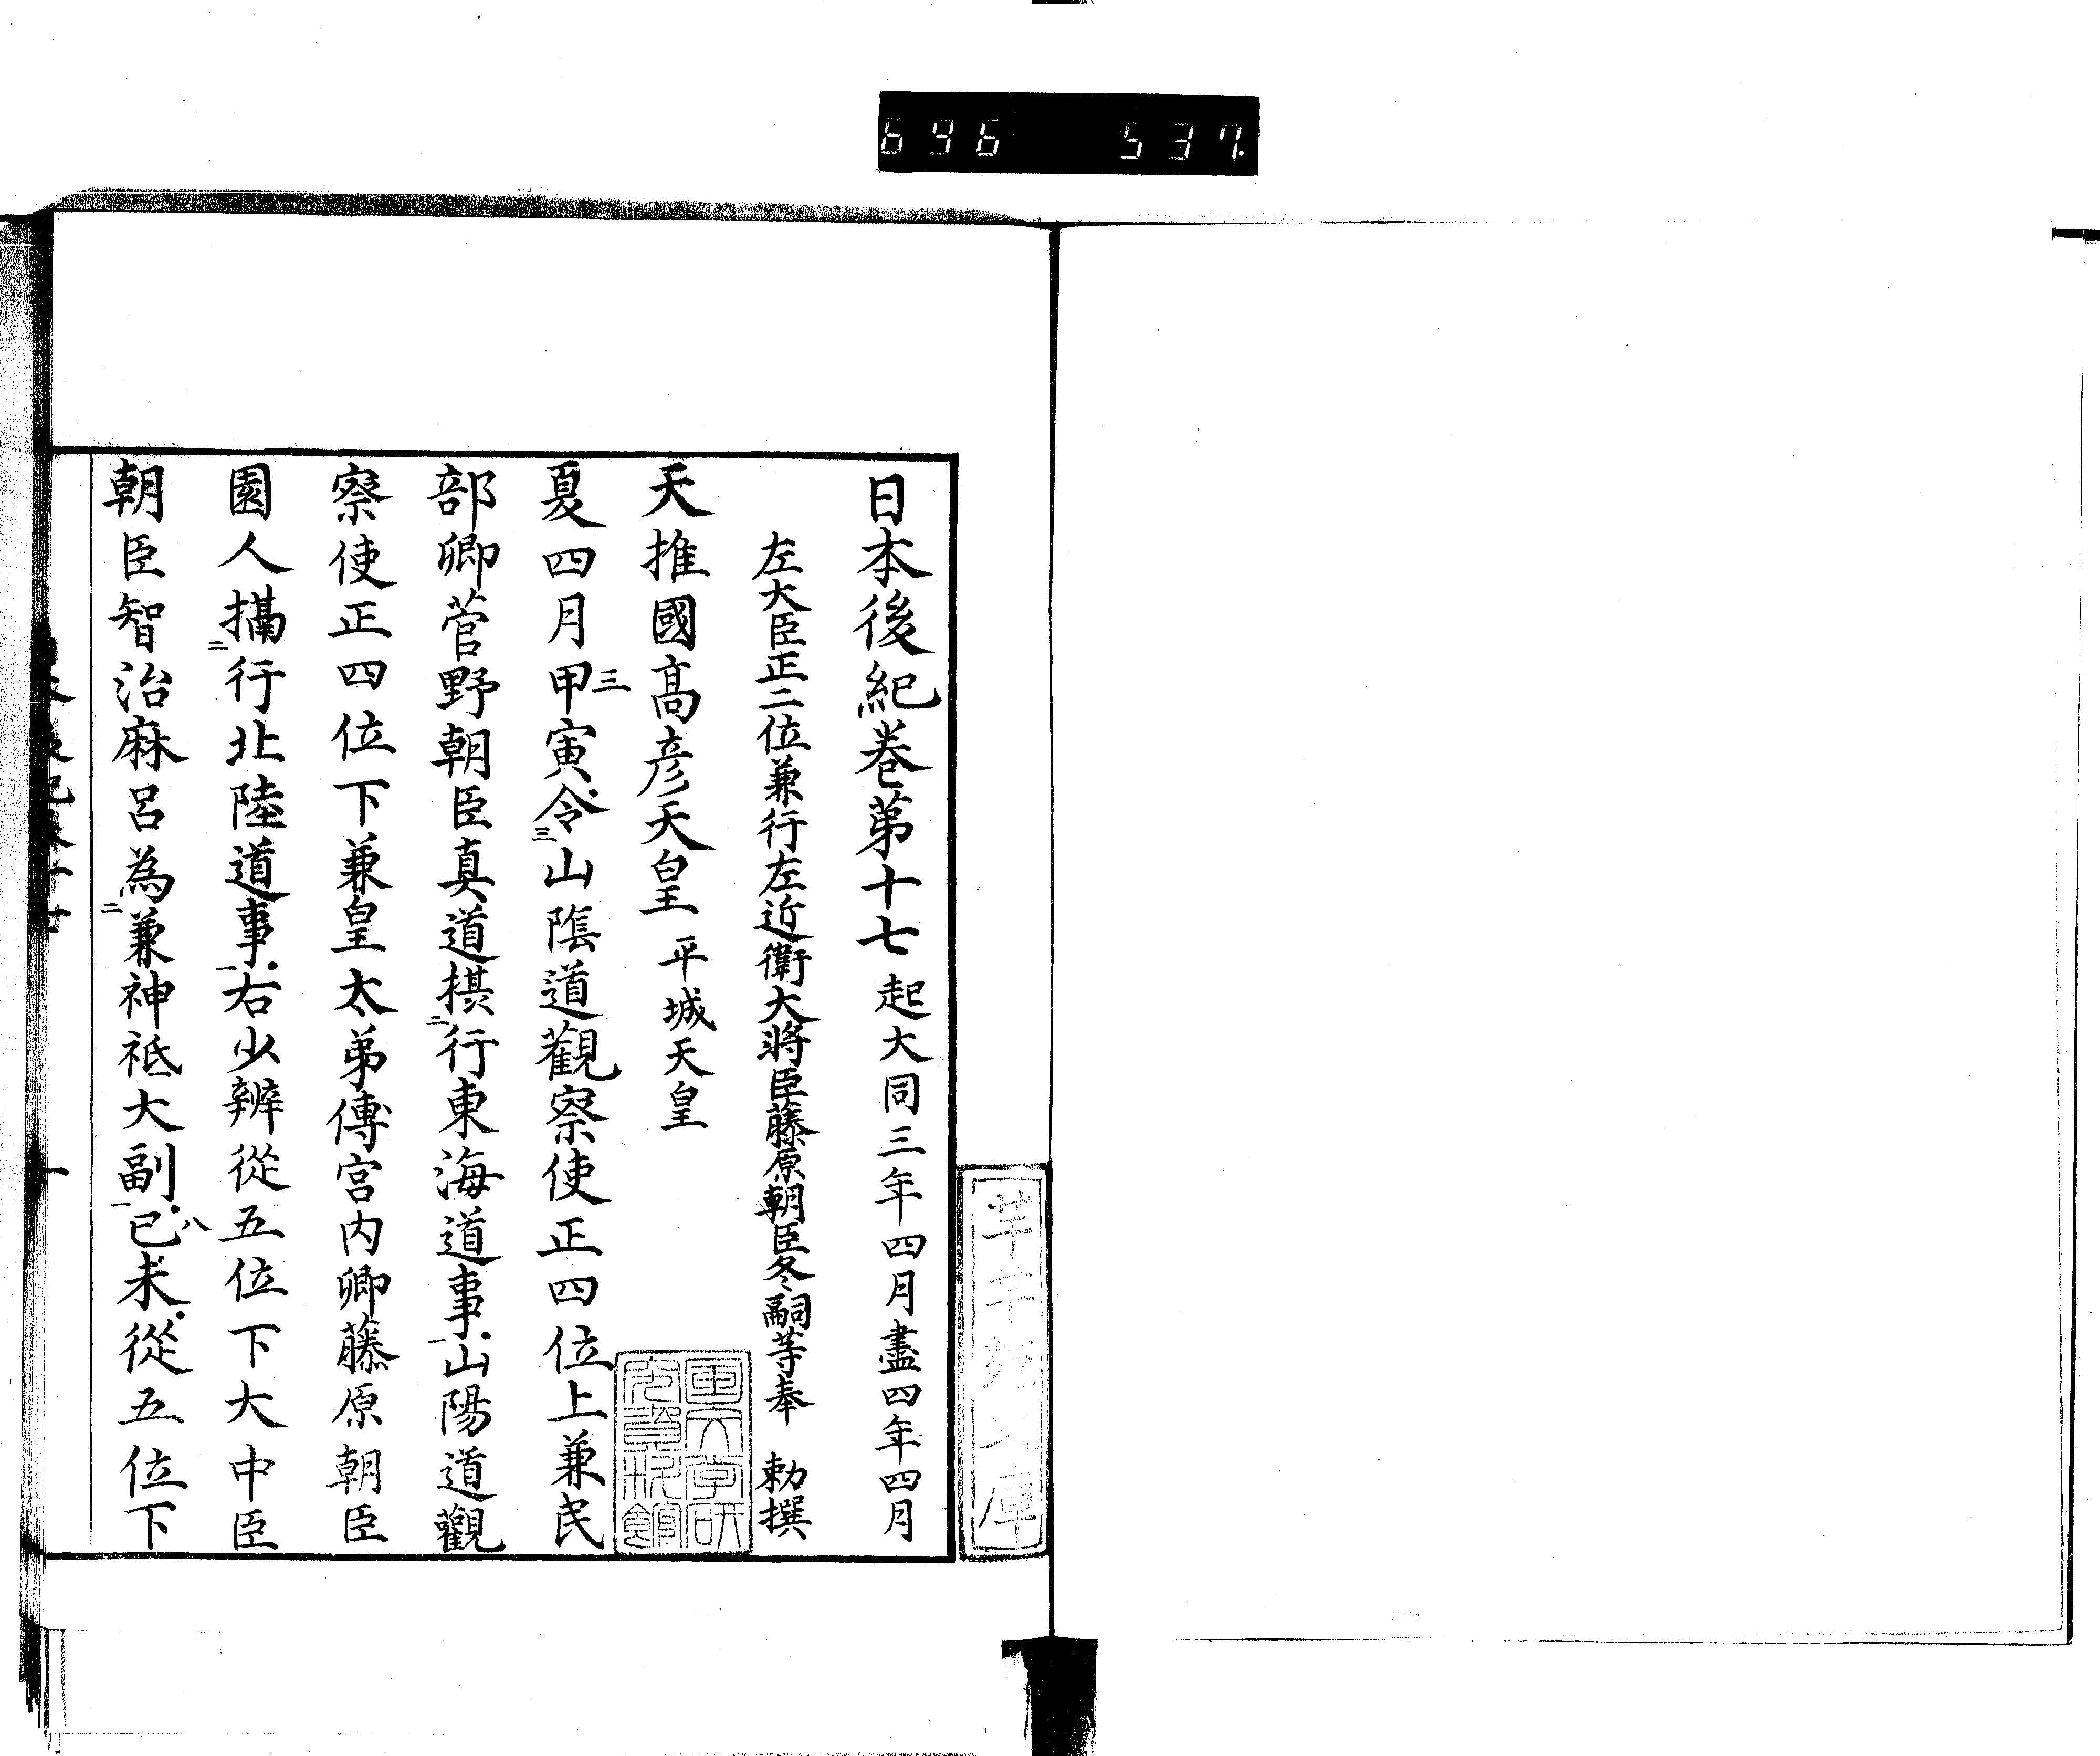 696 537
日本後紀巻第十七 起大同三年四月盡四年四月
左大臣正二位兼行左近衛大將臣藤原朝臣冬嗣等奉 勅撰
天推國高彦天皇 平城天皇
夏四月甲寅三令三山陰道觀察使正四位上兼民
部卿菅野朝臣真道摸二行東海道事一山陽道觀
察使正四位下兼皇太弟傅宮内卿藤原朝臣
園人攝二行北陸道事一右少辨從五位下大中臣
朝臣智治麻呂為二兼神祇大副一已未八從五位下
国文学研究資料館
文庫